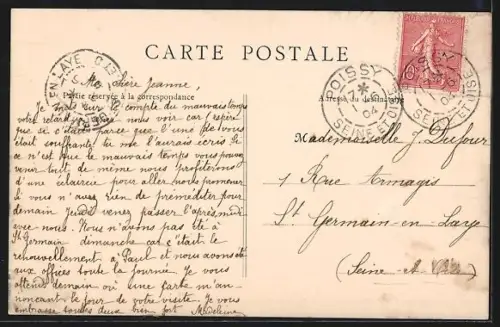 CARTE POSTALE
EN LAYE
POISSY
04
SEINE ET OISE
Partie réservée à la correspondance
Adresse du destinataire
Ma chère Jeanne,
Je mets sur le compte du mauvais temps
votre retard à nous voir car j'espère
que si c'était parce que l'une de vous
était souffrante tu me l'aurais écris. Si
ce n'est que le mauvais temps vous pouvez
venir tout de même nous profiterons
d'une éclaircie pour aller nous promener
Si vous n'avez rien de prémédité pour
demain Jeudi venez passer l'après midi
avec nous. Nous n'avons pas été à
St Germain dimanche car c'était le
renouvellement à Paul et nous avons été
aux offices toute la journée. Je vous
attends demain où une carte m'an-
nonçant le jour de votre visite. Je vous
embrasse toutes deux bien fort Madeleine
Mademoiselle J. Dufour
1 Rue Armagis
St Germain-en-Laye
(Seine-et-Oise)